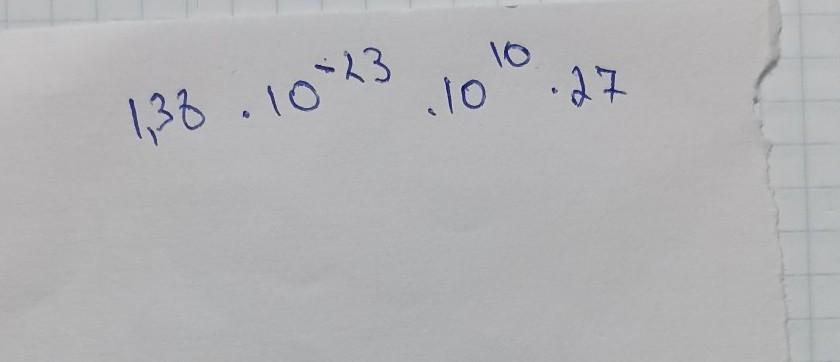 1,38 · 10⁻²³ · 10¹⁰ · 27